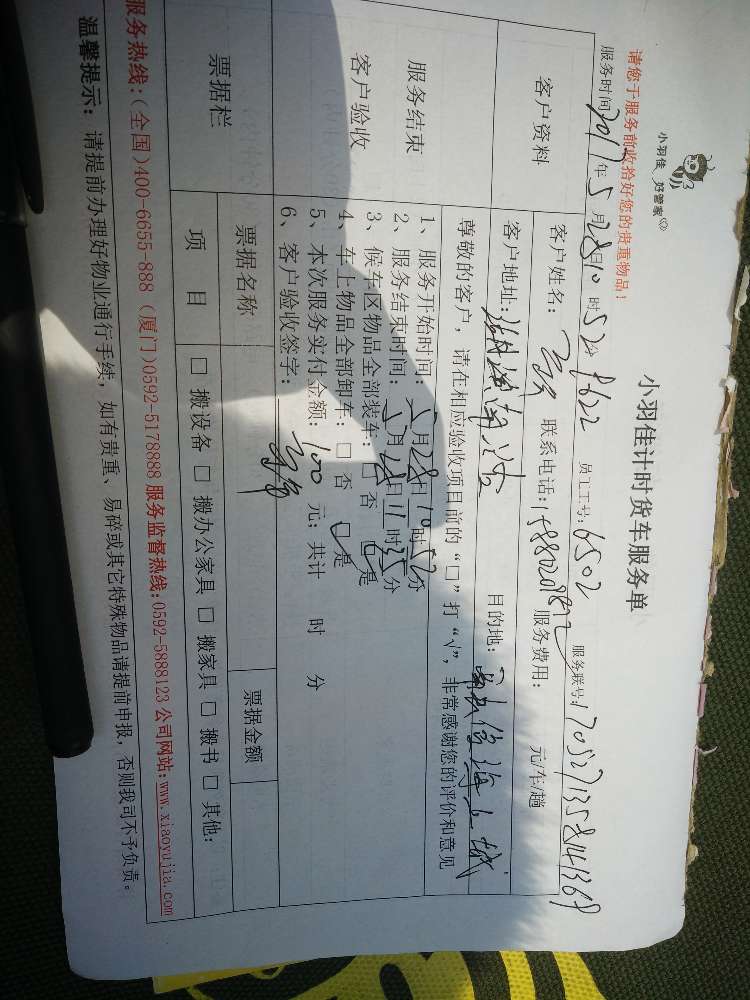 小羽佳 好管家
小羽佳计时货车服务单
请您于服务前收拾好您的贵重物品!
服务时间2017年5月28日10时52分 员工工号:6502 服务联号:
客户资料
客户姓名: 联系电话: 服务费用: 元/车/趟
客户地址: 目的地:
尊敬的客户，请在相应验收项目前的“□”打“√”，非常感谢您的评价和意见
服务结束
客户验收
1、服务开始时间: 5月28日10时52分
2、服务结束时间: 5月28日11时35分
3、候车区物品全部装车: □ 否 □ 是
4、车上物品全部卸车: □ 否 □ 是
5、本次服务实付金额: 100 元; 共计 时 分
6、客户验收签字:
票据栏
票据名称 票据金额
项 目 □ 搬设备 □ 搬办公家具 □ 搬家具 □ 搬书 □ 其他:
服务热线:(全国)400-6655-888 (厦门)0592-5178888 服务监督热线:0592-5888123 公司网站:www.xiaoyujia.com
温馨提示: 请提前办理好物业通行手续, 如有贵重、易碎或其它特殊物品请提前申报, 否则我司不予负责。